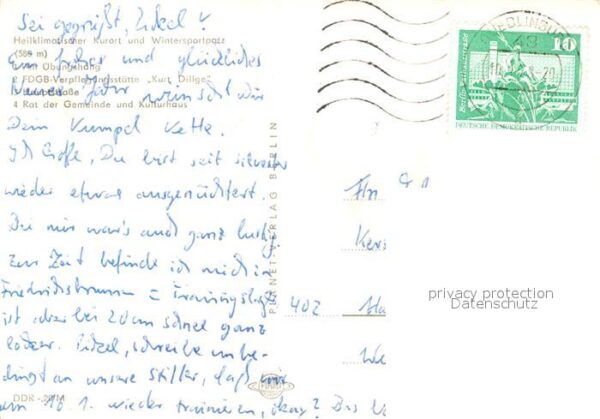 Sei gegrüßt, Mikel!
Heilklimatischer Kurort und Wintersportplatz
(586 m)
Ein frohes und glückliches
Übungshang
2 FDGB-Verpflegungsstätte „Kurt Dillge“
Neues Jahr wünscht dir
Hauptstraße
4 Rat der Gemeinde und Kulturhaus
Dein Kumpel Kette.
Ich hoffe, Du hast seit silvester
wieder etwas ausgenüchtert.
Bei mir war's auch ganz lustig
zur Zeit befinde ich mich in
Friedrichsbrunn = Trainingslager
ist aber bei 20cm schnee ganz
locker. Mikel, schreibe unbe-
dingt an unsere Stifter, daß wir
am 16 1. wieder trainieren, okay? Das
DDR · 20M
PLANET-VERLAG BERLIN
PLANET
QUEDLINBURG
43
10
DEUTSCHE DEMOKRATISCHE REPUBLIK
An
Kers
402 Ha
We
privacy protection
Datenschutz